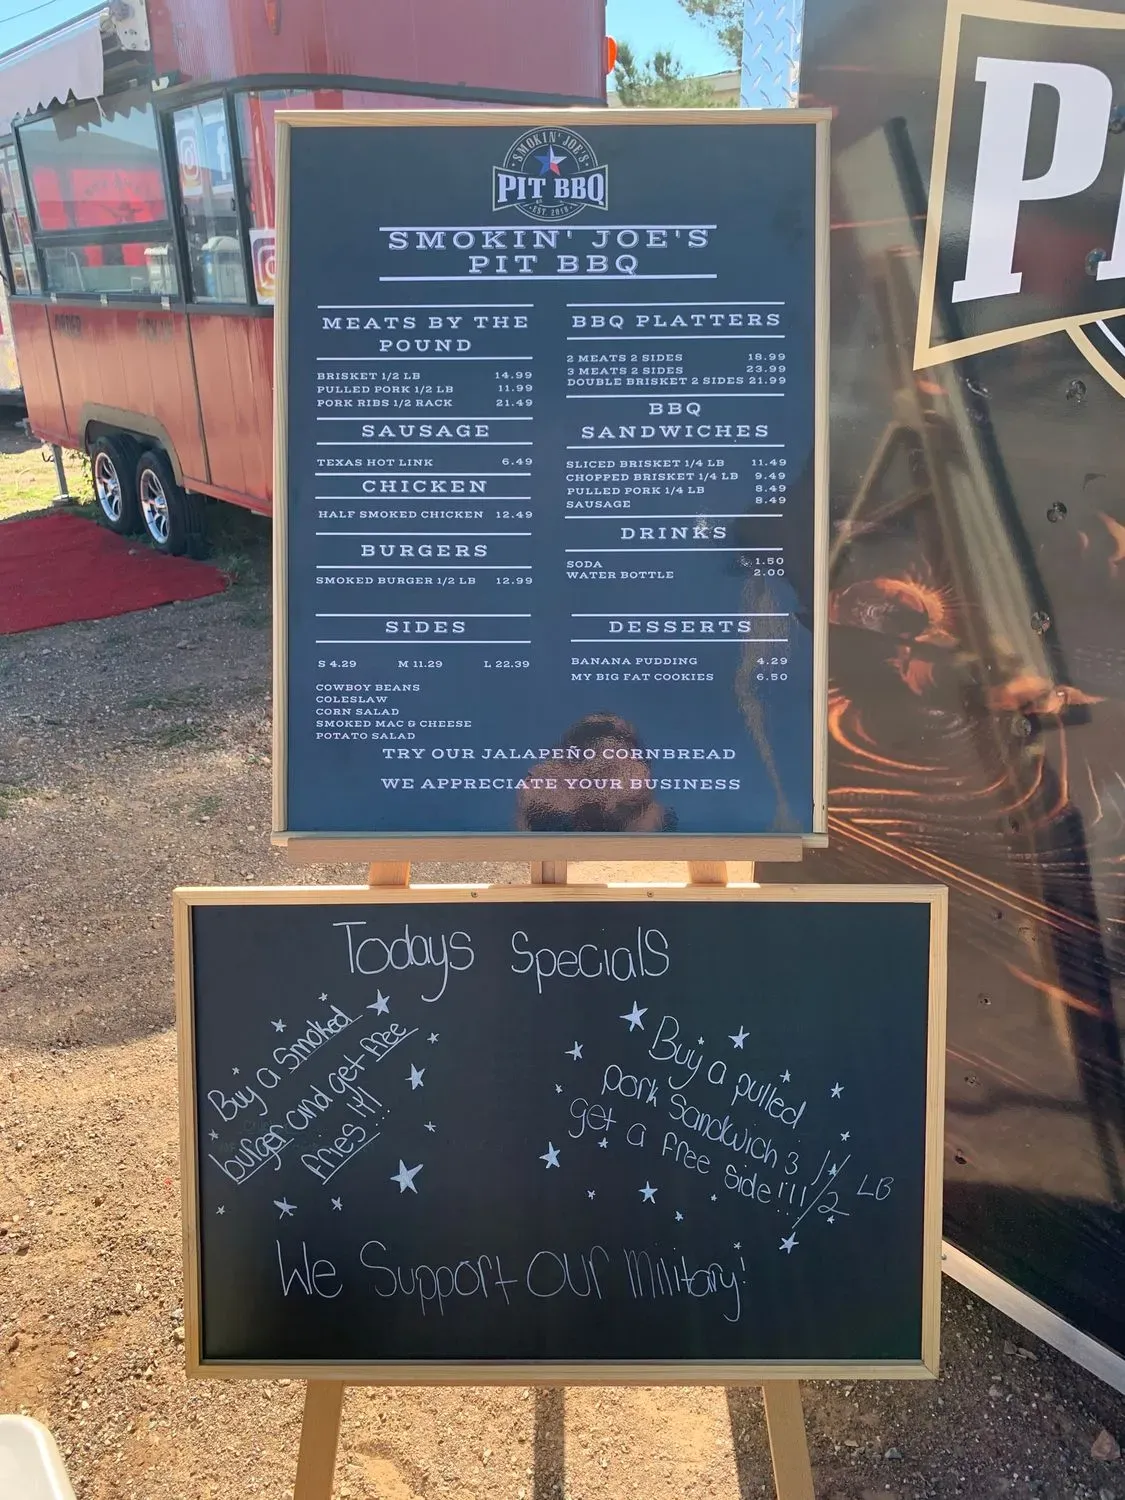 SMOKIN' JOE'S
PIT BBQ
EST. 2019
SMOKIN' JOE'S
PIT BBQ
MEATS BY THE
POUND
BRISKET 1/2 LB 14.99
PULLED PORK 1/2 LB 11.99
PORK RIBS 1/2 RACK 21.49
SAUSAGE
TEXAS HOT LINK 6.49
CHICKEN
HALF SMOKED CHICKEN 12.49
BURGERS
SMOKED BURGER 1/2 LB 12.99
SIDES
S 4.29 M 11.29 L 22.39
COWBOY BEANS
COLESLAW
CORN SALAD
SMOKED MAC & CHEESE
POTATO SALAD
BBQ PLATTERS
2 MEATS 2 SIDES 18.99
3 MEATS 2 SIDES 23.99
DOUBLE BRISKET 2 SIDES 21.99
BBQ
SANDWICHES
SLICED BRISKET 1/4 LB 11.49
CHOPPED BRISKET 1/4 LB 9.49
PULLED PORK 1/4 LB 8.49
SAUSAGE 8.49
DRINKS
SODA 1.50
WATER BOTTLE 2.00
DESSERTS
BANANA PUDDING 4.29
MY BIG FAT COOKIES 6.50
TRY OUR JALAPEÑO CORNBREAD
WE APPRECIATE YOUR BUSINESS
Todays Specials
Buy a Smoked
burger and get free
fries !!!
Buy a pulled
pork Sandwich 3 1/2 LB
get a free side!!!
We Support Our Military!
P